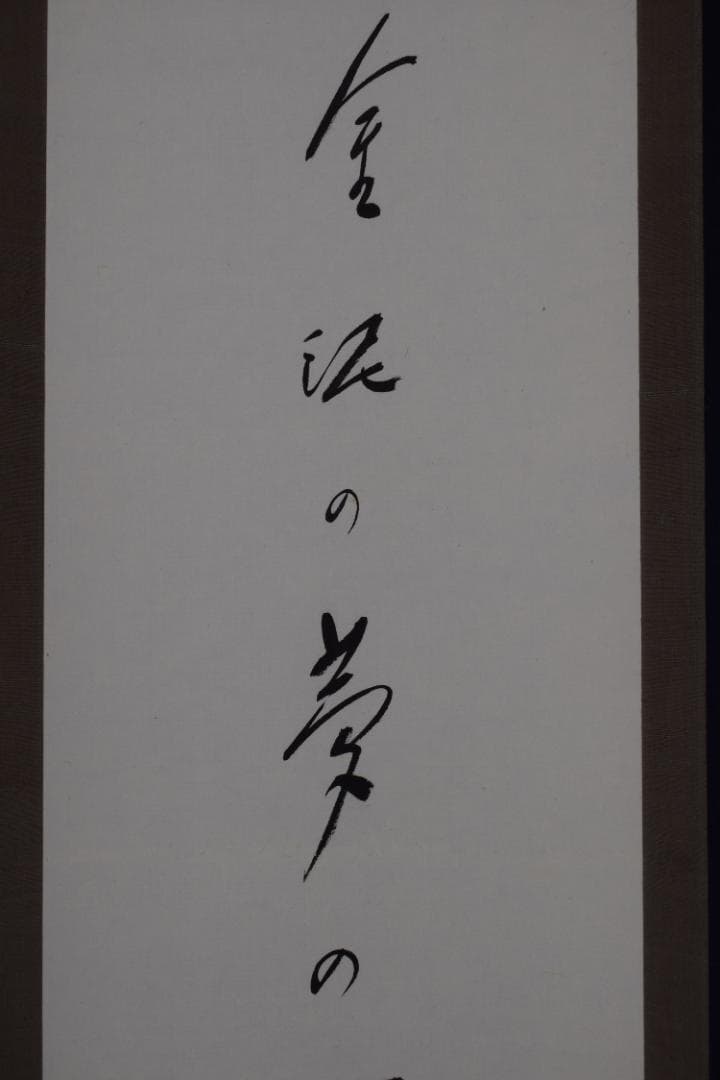 金泥の夢の